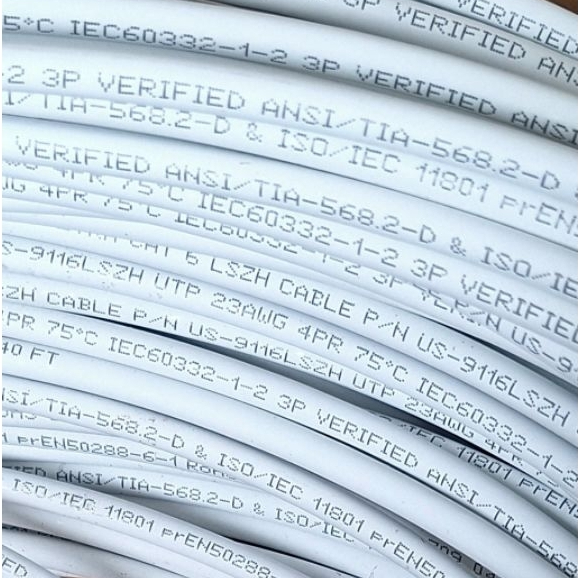 VERIFIED
3P VERIFIED AN
5°C IEC60332-1-2 3P VERIFIED ANSI
-2 3P VERIFIED ANSI/TIA-568.2-D
I/TIA-568.2-D & ISO/IEC 11801 prEN
VERIFIED ANSI/TIA-568.2-D & ISO/IE
4PR 75°C IEC60332-1-2 3P VERIFIED
4PR 75°C IEC60332-1-2 3P VER
CAT 6 LSZH CABLE P/N US-9116LSZH
N US-9
S-9116LSZH UTP 23AWG 4PR 75°C IEC60332-1-2
ZH CABLE P/N US-9116LSZH UTP 23AWG 4PR
PR 75°C IEC60332-1-2 3P VERIFIED ANSI/TIA-568
40 FT
/IEC 11801 prEN
SI/TIA-568.2-D & ISO/IEC 11801 prEN5
1 prEN50288-6-1
IED ANSI/TIA-568.2-D & ISO/IEC
ISO/IEC 11801 prEN50288-
ED